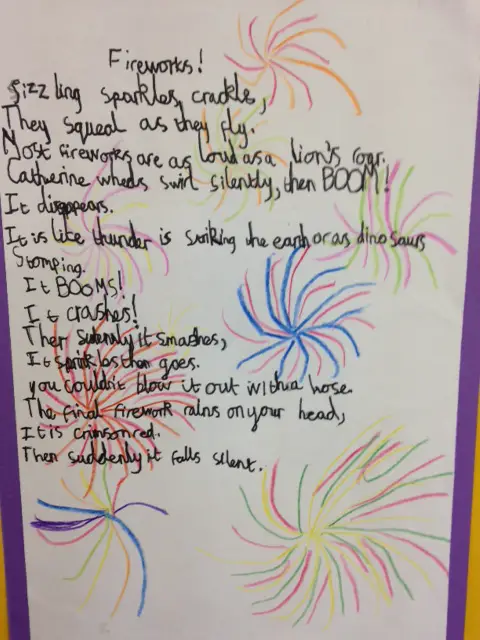 Fireworks!
Sizzling sparkles, crackle,
They squeal as they fly.
Most fireworks are as loud as a lion's roar.
Catherine wheels swirl silently, then BOOM!
It disappears.
It is like thunder is striking the earth or as dinosaurs
Stomping.
It BOOMS!
It crashes!
Then sudenly it smashes,
It sprinkls than goes.
you couldn't blow it out with a hose.
The final firework rains on your head,
It is crimson red.
Then suddenly it falls silent.